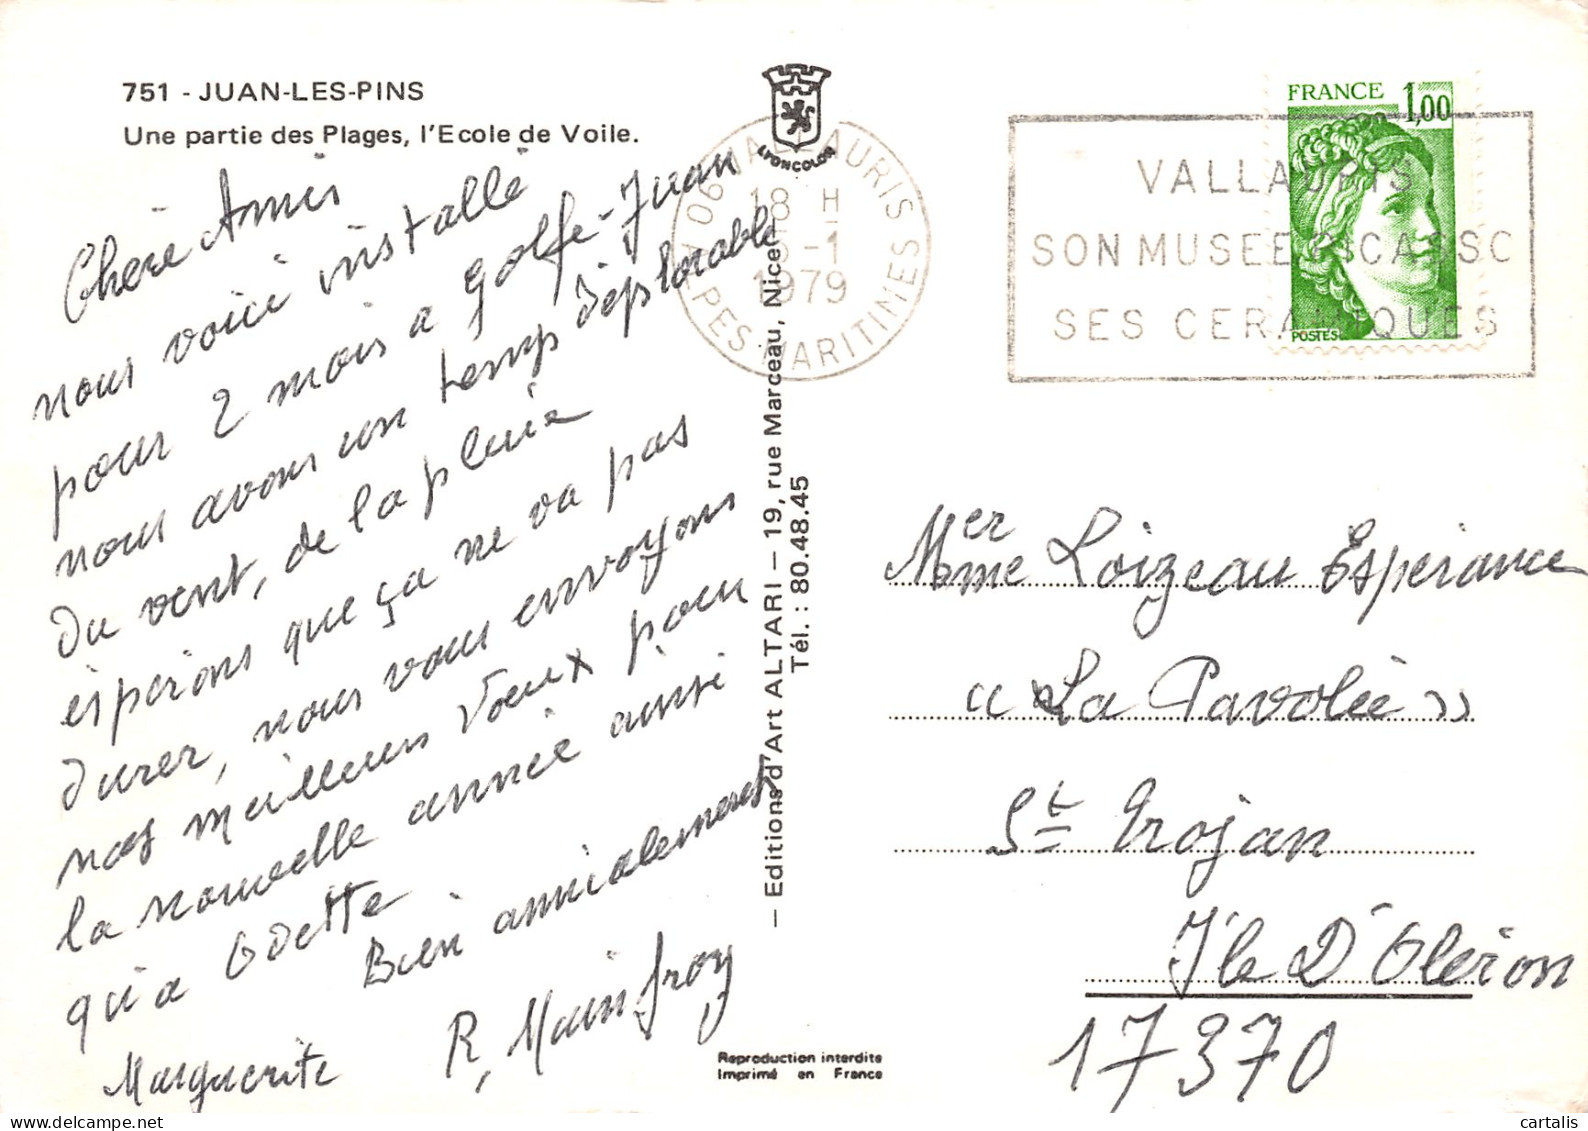 751 - JUAN-LES-PINS
Une partie des Plages, l'Ecole de Voile.
LYONCOLOR
06 VALLAURIS
18 H
5-1
1979
ALPES-MARITIMES
VALLAURIS
SON MUSEE PICASSO
SES CERAMIQUES
FRANCE 1,00
POSTES
Chère Amis
nous voici installé
pour 2 mois a golfe-Juan
nous avons un temps déplorable
du vent, de la pluie
espérons que ça ne va pas
durer, nous vous envoyons
nos meilleurs voeux pour
la nouvelle année ainsi
qu'a Odette
Bien amicalement
Marguerite R, Mainfroy
— Editions d'Art ALTARI — 19, rue Marceau, Nice
Tél. : 80.48.45
Mer
Mme Loizeau Espérance
"La Pavolée"
St Trojan
Ile D'Oléron
17370
Reproduction interdite
Imprimé en France
cartalis